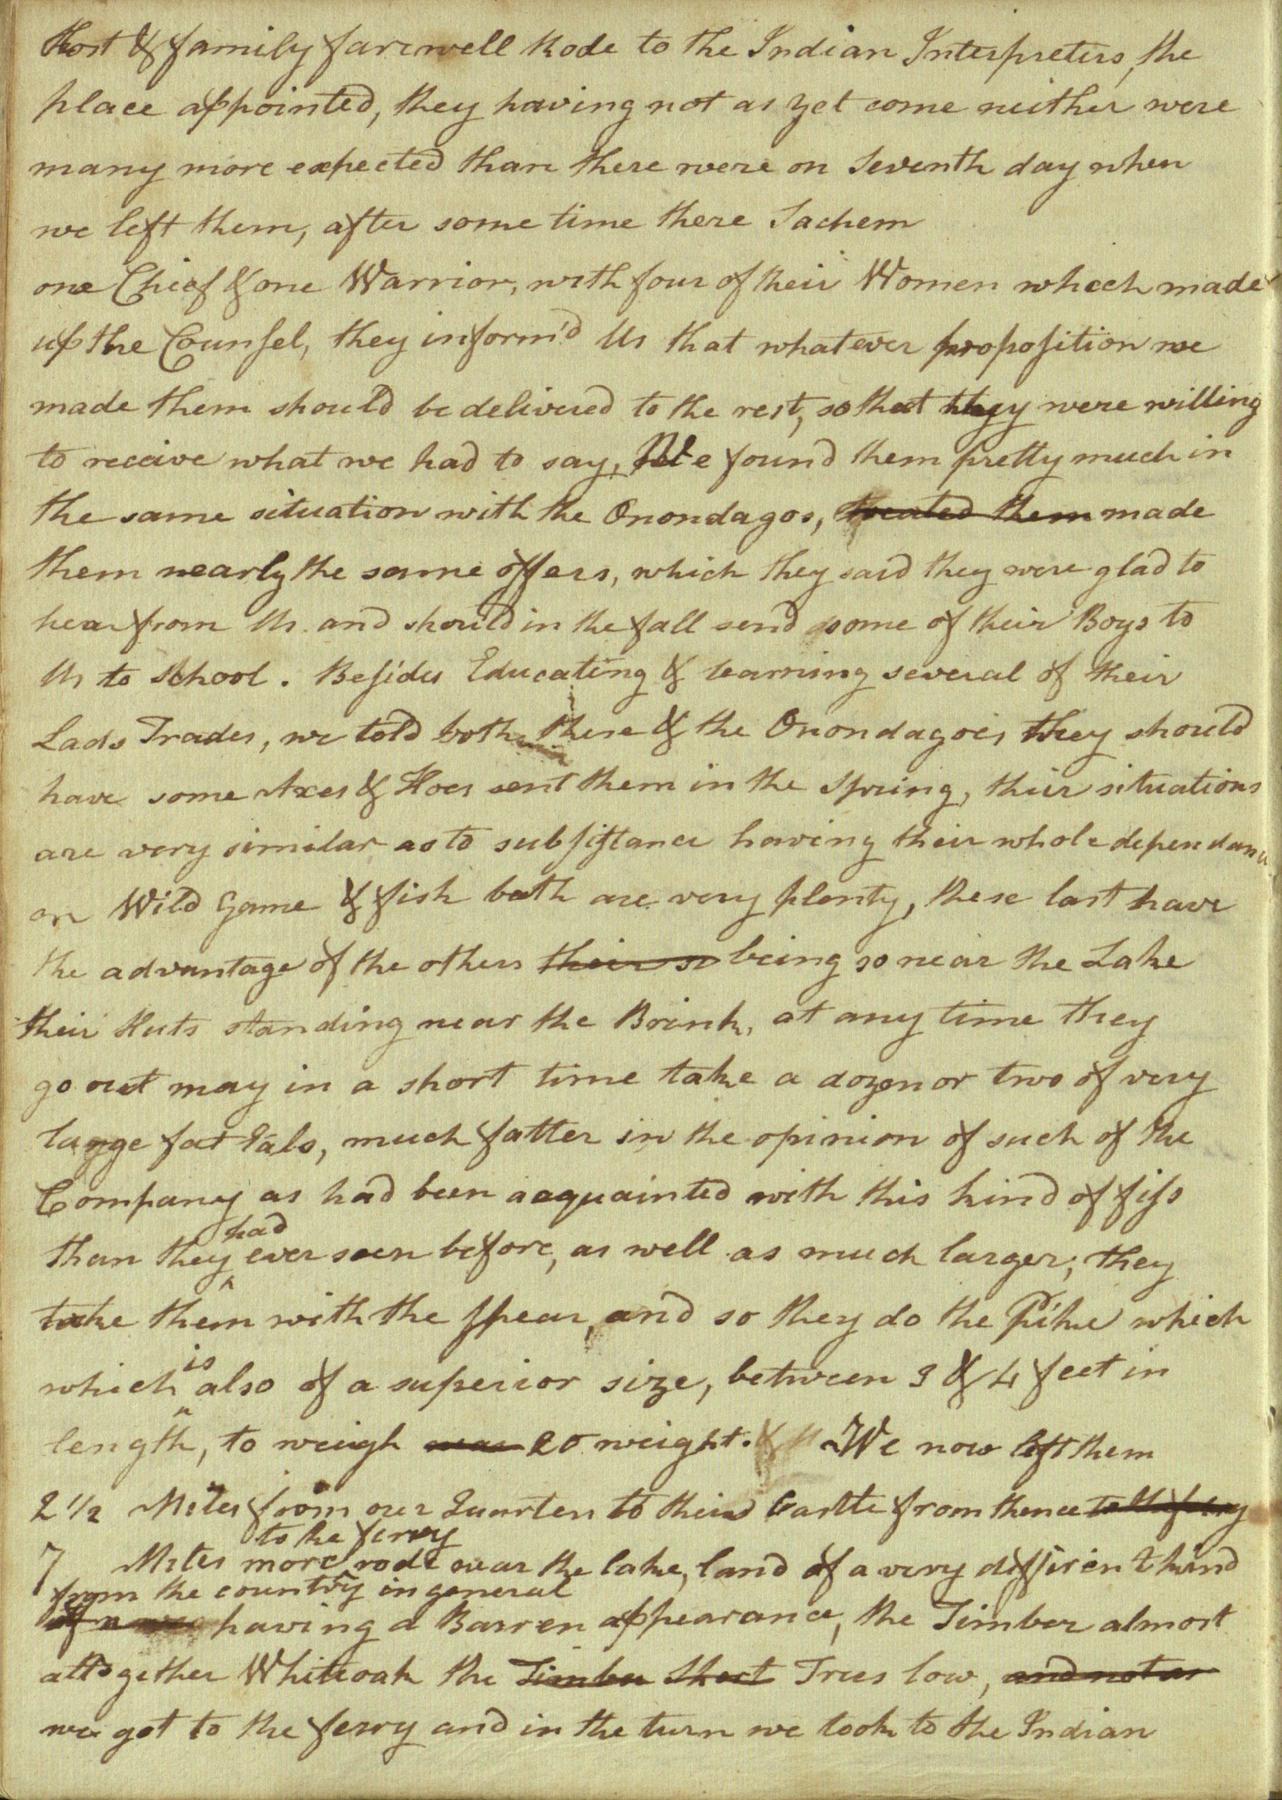 Host & family farewell Rode to the Indian Interpreters, the
place appointed, they having not as yet come neither were
many more expected than there were on Seventh day when
we left them, after some time there Sachem
one Chief & one Warrior, with four of their Women which made
up the Counsel, they inform'd Us that whatever proposition we
made them should be delivered to the rest, so that they were willing
to receive what we had to say, We found them pretty much in
the same situation with the Onondagos, treated them made
them nearly the same offers, which they said they were glad to
hear from Us and should in the fall send some of their Boys to
Us to School. Besides Educating & learning several of their
Lads Trades, we told both these & the Onondagoes they should
have some Axes & Hoes sent them in the Spring, their situations
are very similar as to subsistance having their whole dependance
on Wild Game & fish both are very plenty, these last have
the advantage of the others their so being so near the Lake
their Huts standing near the Brink, at any time they
go out may in a short time take a dozen or two of very
large fat Eals, much fatter in the opinion of such of the
Company as had been acquainted with this kind of fiss
had
than they ever seen before, as well as much larger; they
take them with the Spear, and so they do the Pike which
is
which also of a superior size, between 3 & 4 feet in
length, to weigh was 20 weight. We now left them
2 1/2 Miles from our Quarters to their Castle from thence to the ferry
to the ferry
7 Miles more rode near the lake, land of a very different kind
from the country in general
of a having a Barren appearance, the Timber almost
alltogether Whiteoak the Timber Short Trees low, and not as
we got to the ferry and in the turn we took to the Indian